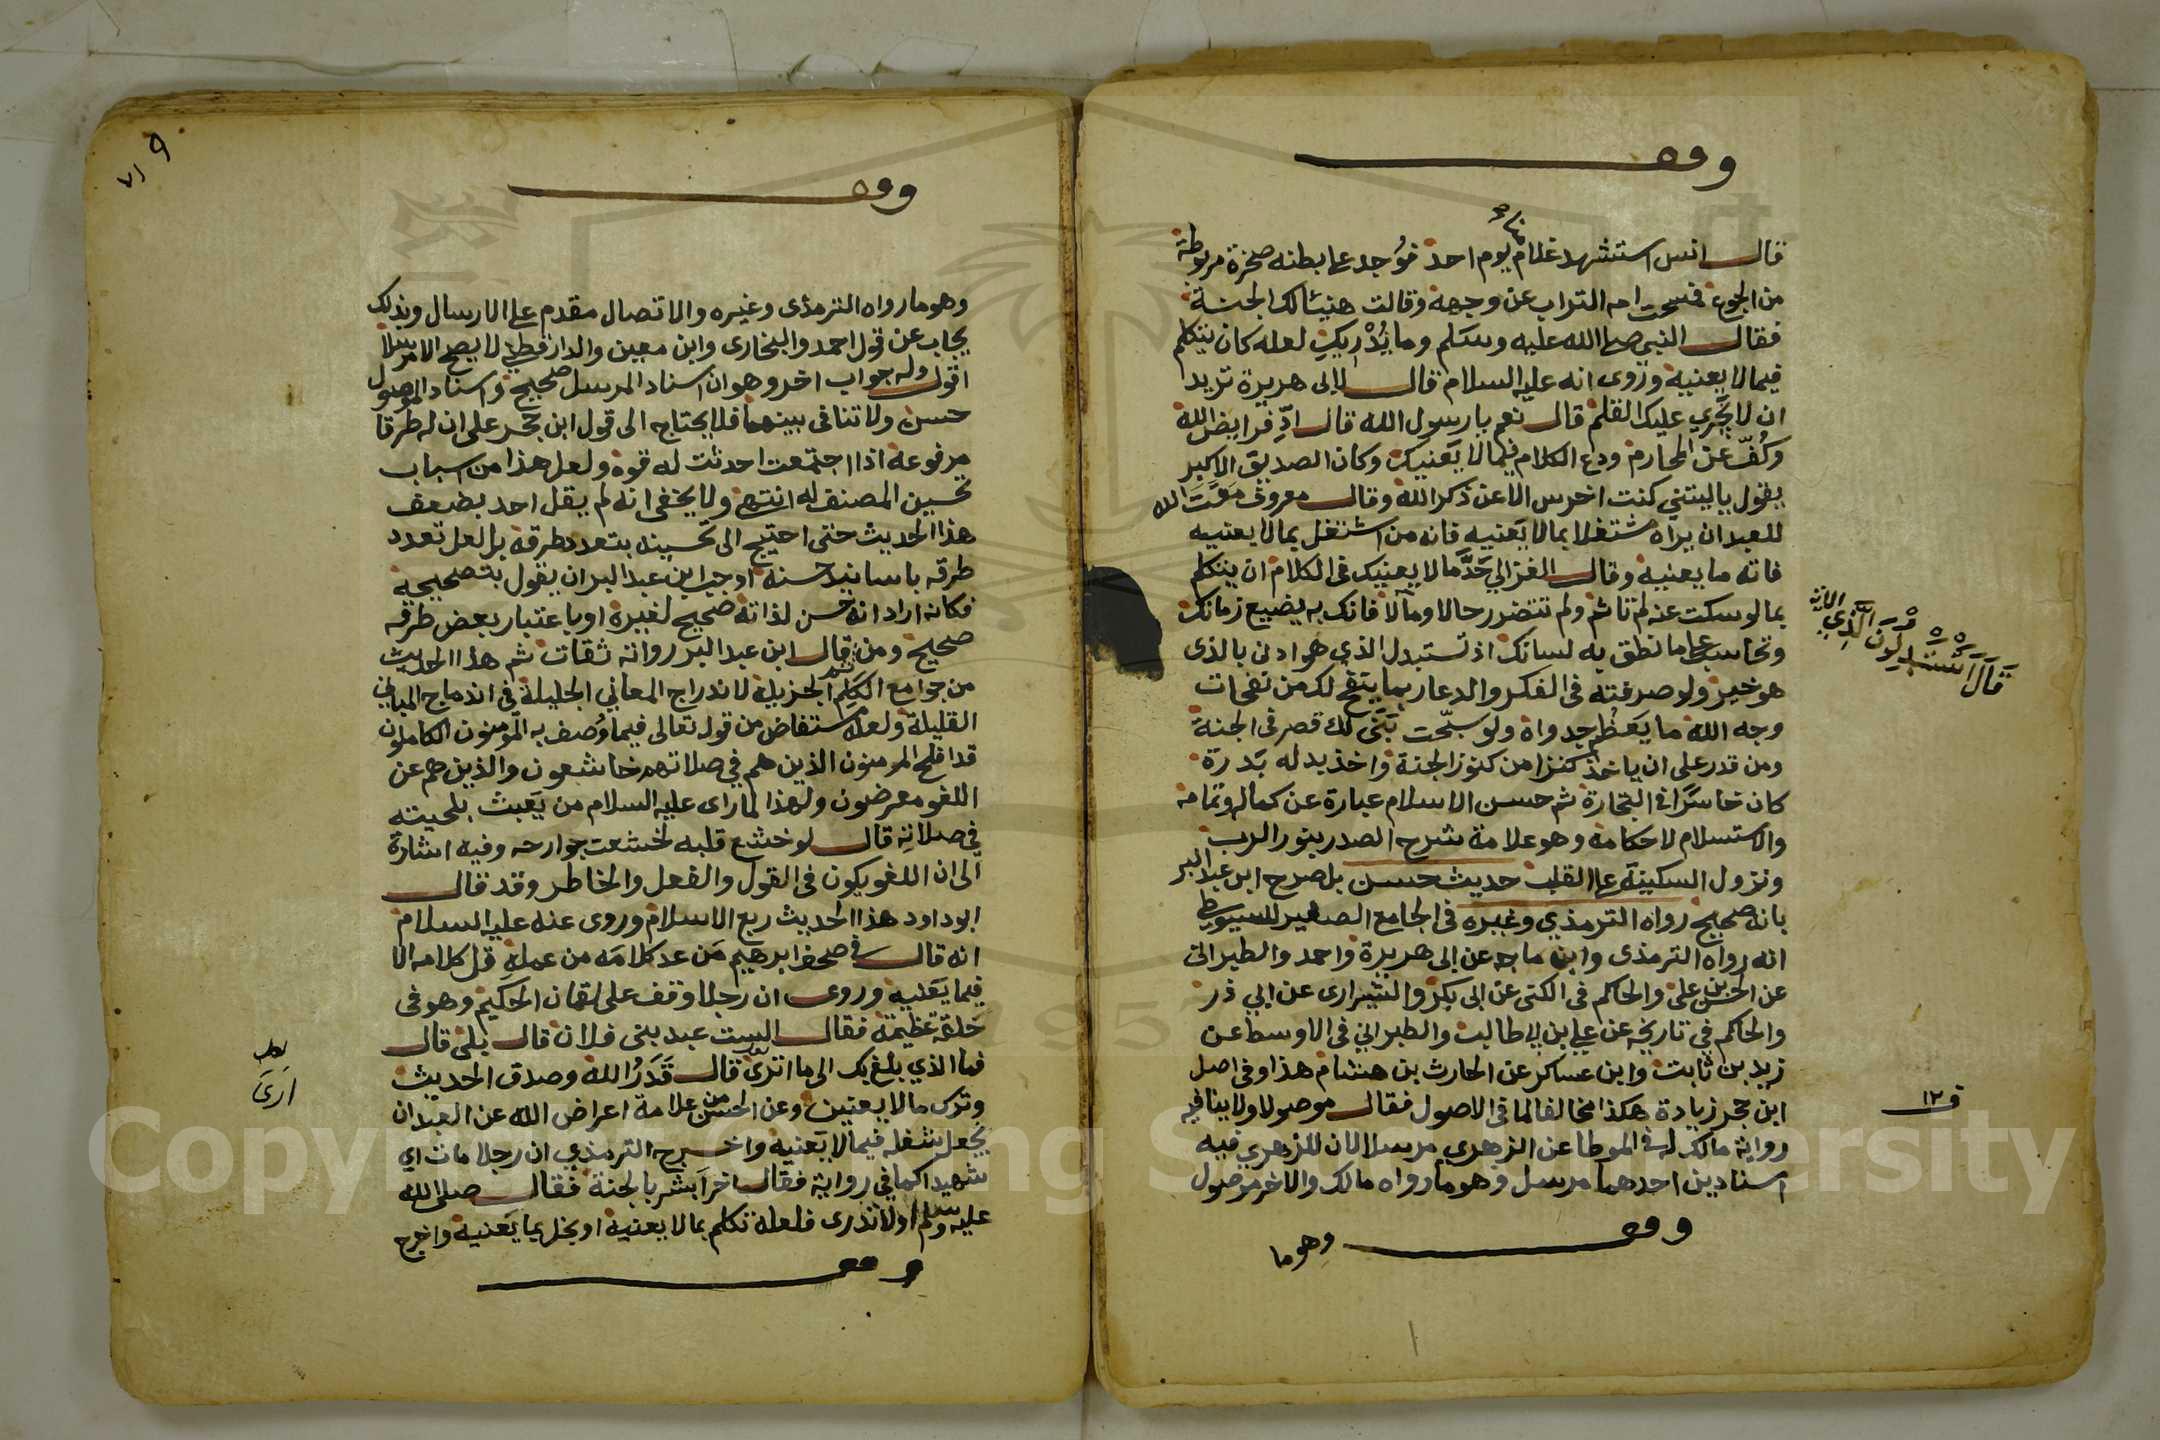 وقف
قال انس استشهد غلام يوم احد فوُجد على بطنه صخرة مربوطة
من الجوع فمسحت امه التراب عن وجهه وقالت هنيئا لك الجنة
فقال النبي صلى الله عليه وسلم وما يُدْرِيكِ لعله كان يتكلم
فيما لا يعنيه وروى انه عليه السلام قال لابى هريرة تريد
ان لا يجري عليك القلم قال نعم يا رسول الله قال ادِّ فرايض الله
وكُفّ عن المحارم ودع الكلام فيما لا يعنيك وكان الصديق الاكبر
يقول يا ليتني كنت اخرس الا عن ذكر الله وقال معروف مَقت الله
للعبد ان يراه مشتغلا بما لا يعنيه فانه من اشتغل بما لا يعنيه
فاته ما يعنيه وقال الغزالي حَدُّ ما لا يعنيك فى الكلام ان يتكلم
بما لو سكت عنه لم تاثم ولم تتضرر حالا ومآلا فانك به يضيع زمانك
وتحاسب على ما نطق به لسانك اذ تستبدل الذي هو ادنى بالذى
هو خير ولو صرفته فى الفكر والدعا ربما ينفتح لك من نفحات
وجه الله ما يعظم جدواه ولو سبّحت بَنَى لك قصر فى الجنة
ومن قدر على ان ياخذ كنزا من كنوز الجنة واخذ بدله بَدرة
كان خاسرًا فى التجارة ثم حسن الاسلام عبارة عن كماله وتمامه
والاستسلام لاحكامه وهو علامة شرح الصدر بنور الرب
ونزول السكينة على القلب حديث حسن بل صرح ابن عبد البر
بانه صحيح رواه الترمذي وغيره فى الجامع الصغير للسيوطي
انه رواه الترمذى وابن ماجه عن ابى هريرة واحمد والطبرانى
عن الحسين بن على والحاكم فى الكنى عن ابى بكر والشيرازى عن ابي ذر
والحاكم فى تاريخه عن علي بن ابي طالب والطبراني فى الاوسط عن
زيد بن ثابت وابن عساكر عن الحارث بن هشام هذا وفى اصل
ابن حجر زيادة هكذا مخالفا لما فى الاصول فقال موصولا ولا ينافيه
رواية مالك له فى الموطا عن الزهري مرسلا لان للزهري فيه
اسنادين احدهما مرسل وهو ما رواه مالك والاخر موصول
وقف
وهو ما
قال اتستبدلون الذي الاية
ف ١٢
وقف
٩
وهو ما رواه الترمذى وغيره والاتصال مقدم على الارسال وبذلك
يجاب عن قول احمد والبخارى وابن معين والدارقطني لا يصح الا مرسلا
اقول وله جواب اخر وهو ان اسناد المرسل صحيح واسناد الموصول
حسن ولا تنافى بينهما فلا يحتاج الى قول ابن حجر على ان له طرقا
مرفوعة اذا اجتمعت احدثت له قوة ولعل هذا من اسباب
تحسين المصنف له انتهى ولا يخفى انه لم يقل احد بضعف
هذا الحديث حتى احتيج الى تحسينه بتعدد طرقه بل لعل تعدد
طرقه باسانيد حسنة اوجب ابن عبد البر ان يقول بتصحيحه
فكانه اراد انه حسن لذاته صحيح لغيره او باعتبار بعض طرقه
صحيح ومن ثم قال ابن عبد البر رواته ثقات ثم هذا الحديث
من جوامع الكَلِم الجزيلة لاندراج المعاني الجليلة فى اندماج المباني
القليلة ولعله مستفاض من قوله تعالى فيما وُصف به المومنون الكاملون
قد افلح المومنون الذين هم في صلاتهم خاشعون والذين هم عن
اللغو معرضون ولهذا لما راى عليه السلام من يَعبث بلحيته
في صلاته قال لو خشع قلبه لخشعت جوارحه وفيه اشارة
الى ان اللغو يكون فى القول والفعل والخاطر وقد قال
ابو داود هذا الحديث ربع الاسلام وروى عنه عليه السلام
انه قال فى صحف ابرهيم مَن عد كلامَه من عمله قل كلامه الا
فيما يَعنيه وروى ان رجلا وقف على لقمان الحكيم وهو فى
حَلقة عظيمة فقال الست عبد بنى فلان قال بلى قال
فما الذي بلغ بك الى ما ارى قال قَدَرُ الله وصدق الحديث
وترك ما لا يعنين وعن الحسن من علامة اعراض الله عن العبد ان
يجعل شغله فيما لا يَعنيه واخرج الترمذي ان رجلا مات اي
شهيدا كما في رواية فقال اخر ابشر بالجنة فقال صلى الله
عليه وسلم اولا تدرى فلعله تكلم بما لا يعنيه او بخل بما يَعنيه واخرج
وقف
ارى